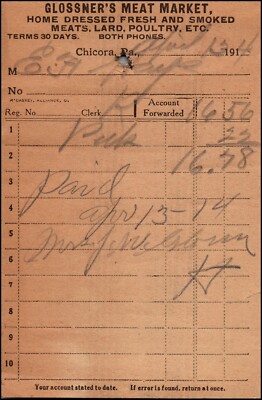 GLOSSNER'S MEAT MARKET,
HOME DRESSED FRESH AND SMOKED
MEATS, LARD, POULTRY, ETC.
TERMS 30 DAYS. BOTH PHONES.
Chicora, Pa., 191
M
No.
Reg. No. Clerk Account Forwarded 16.56
1 22
2 16.78
3 Paid
4 apr 13-14
5
6
7
8
9
10
Your account stated to date. If error is found, return at once.